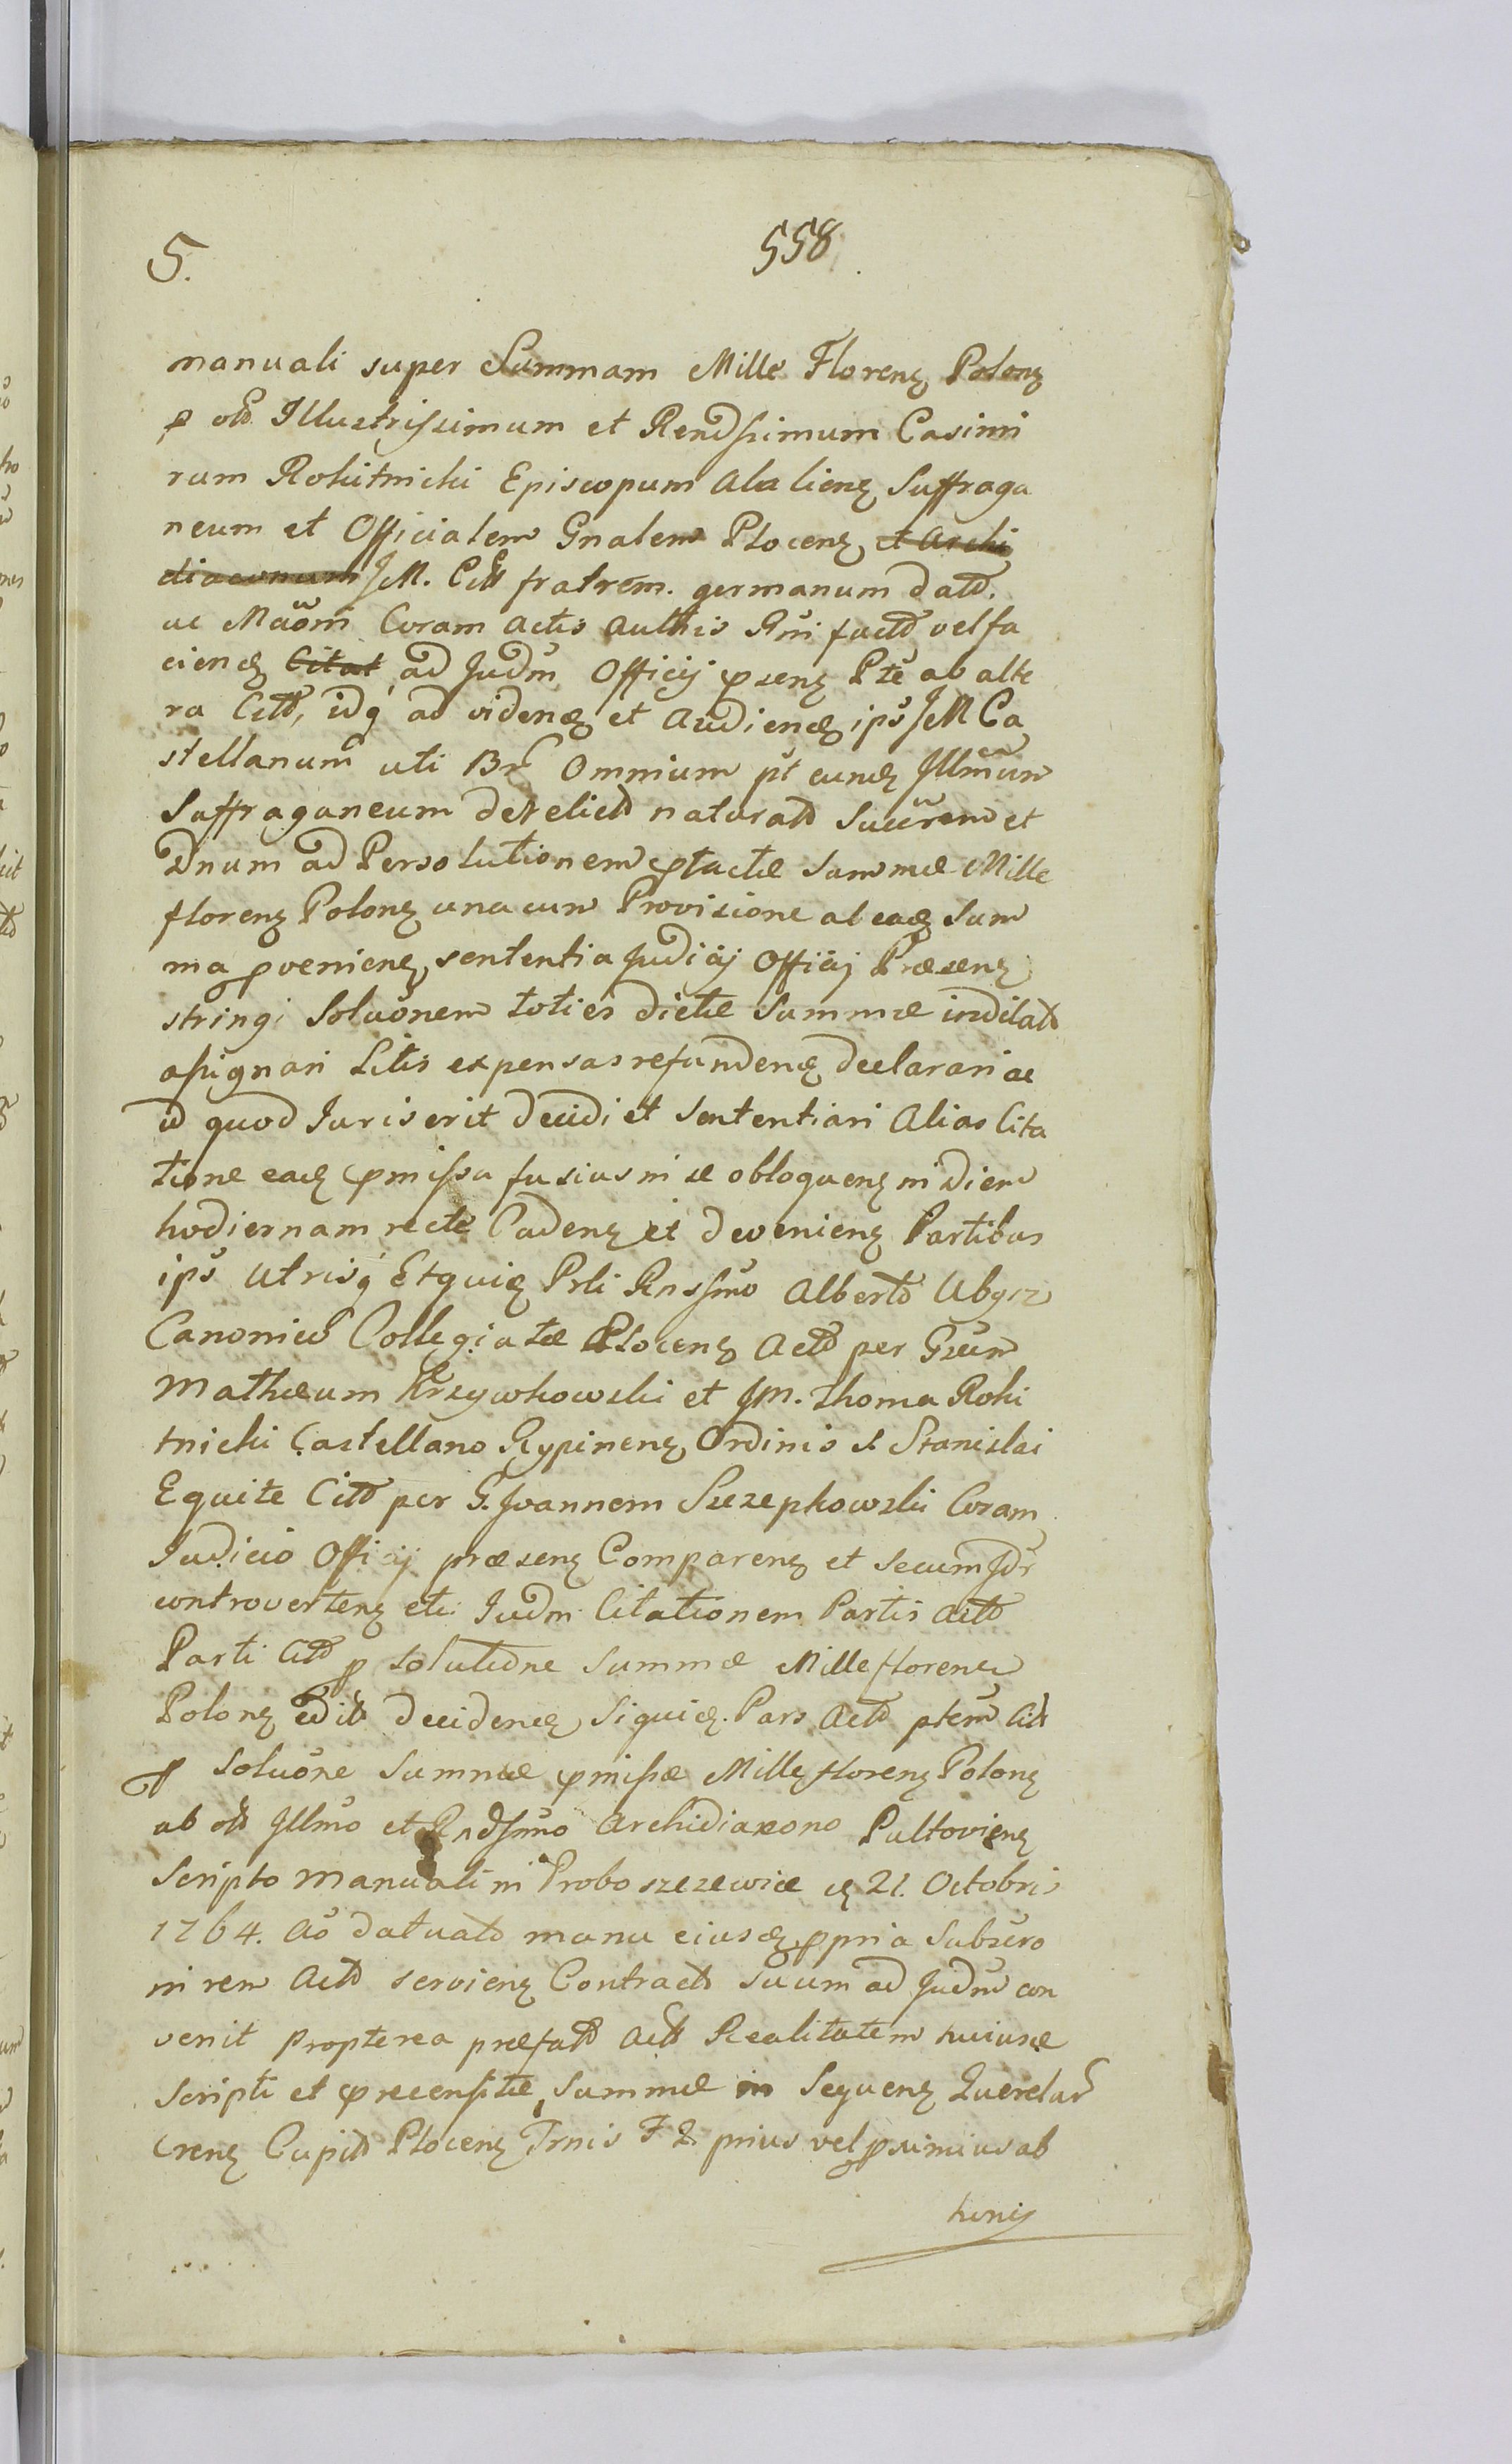 5. 558
manuali super Summam Mille Florenz Polonz
p old Illustrissimum et Rendssimum Casimi
rum Rokitnicki Episcopum Abalienz Suffraga
neum et Officialem Gnalem Plocenz et Archi
diaconum JM. Citt fratrem. germanum datt.
ac Maom Coram Actis Authis Rni factt vel fa
ciendz Citat ad Judm Officij psenz Pte ab alte
ra Citt, idq ad videndz et Audiendz ips JM Ca
stellanum uti Br Omnium pt eundz Illmum
Suffraganeum derelictt naturatt Succrem et
Dnum ad Persolutionem ptactæ Summæ Mille
florenz Polonz una cum Provisione ab eadz Sum
ma pvenienz, sententia Judicij Officij Præsenz
stringi Soluonem toties dictæ Summæ indilatt
assignari Litis expensas refundendz declarari ac
id quod Juris erit decidi et Sententiari Alias Cita
tione eadz pmissa fusius in se obloquenz in diem
hodiernam recte Cadenz et devenienz Partibus
ips utrisq Etquidz Prli Rnssmo Alberto
Canonico Collegiatæ Plocenz Actt per Gsum
Mathæum Krzywkowski et JM. Thoma Roki
tnicki Castellano Rypinenz Ordinis S. Stanislai
Equite Citt per G. Joannem Szczepkowski Coram
Judicio Officij præsenz Comparenz et Secum Jdr
controvertenz etc Judm Citationem Partis Actt
Parti Citt p Solutione Summæ Mille florenz
Polonz edit decidendz Siquidz. Pars Actt ptem Citt
p Soluone Summæ pmissæ Mille florenz Polonz
ab old Illmo et Rndssmo Archidiacono Pultovienz
Scripto Manuali in Proboszczewice dz 21. Octobris
1764. Ao datuatt manu eiusdz ppria Subscro
in rem Actt servienz Contractt Suum ad Judm con
venit propterea præfatt Actt Realitatem huiusce
Scripti et precensitæ Summæ in Sequenz Querelar
Crenz Capitt Plocenz Trnis F 2. prius vel pximius ab
hinc